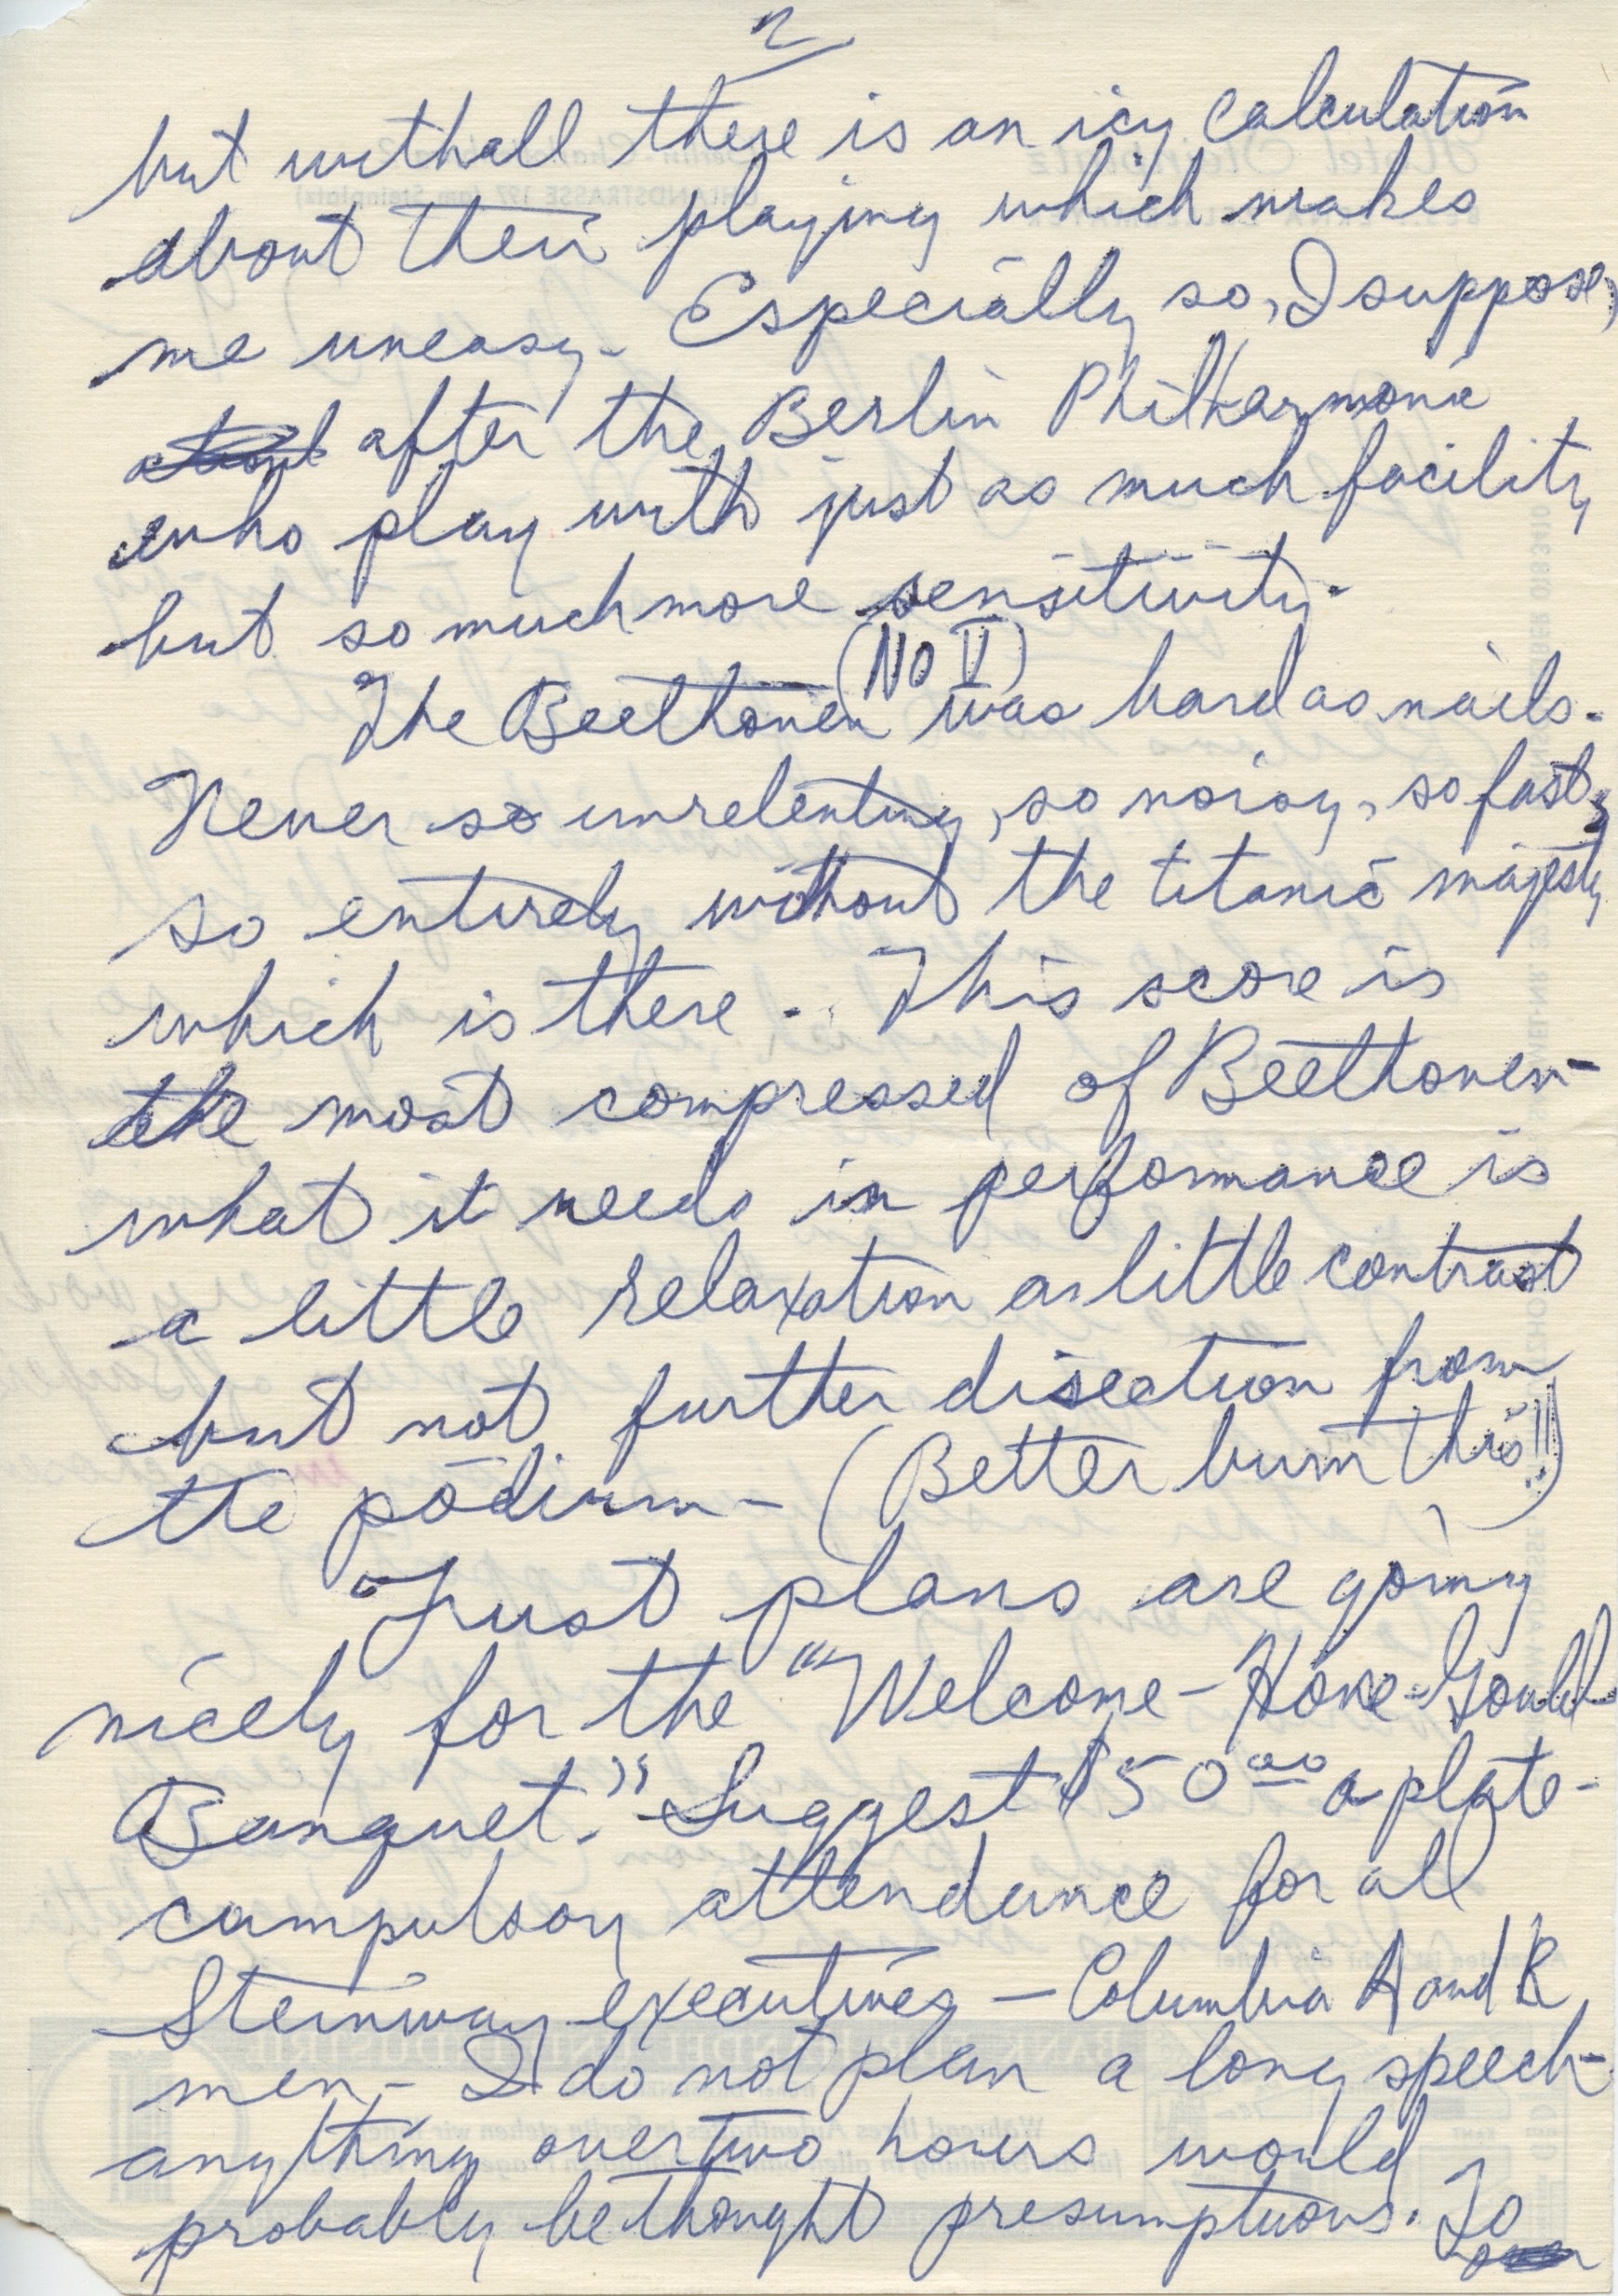 2
but withall there is an icy calculation
about their playing which makes
me uneasy. Especially so, I suppose,
after the Berlin Philharmonic
who play with just as much facility
but so much more sensitivity.
The Beethoven (No V) was hard as nails.
Never so unrelenting, so noisy, so fast,
so entirely without the titanic majesty
which is there. This score is
the most compressed of Beethoven -
what it needs in performance is
a little relaxation a little contrast
but not further disection from
the podium - (Better burn this!!)
Trust plans are going
nicely for the "Welcome-Home-Gould-
Banquet." Suggest $50.00 a plate -
compulsory attendance for all
Steinway executives - Columbia A and R
men - I do not plan a long speech -
anything over two hours would
probably be thought presumptuous. To